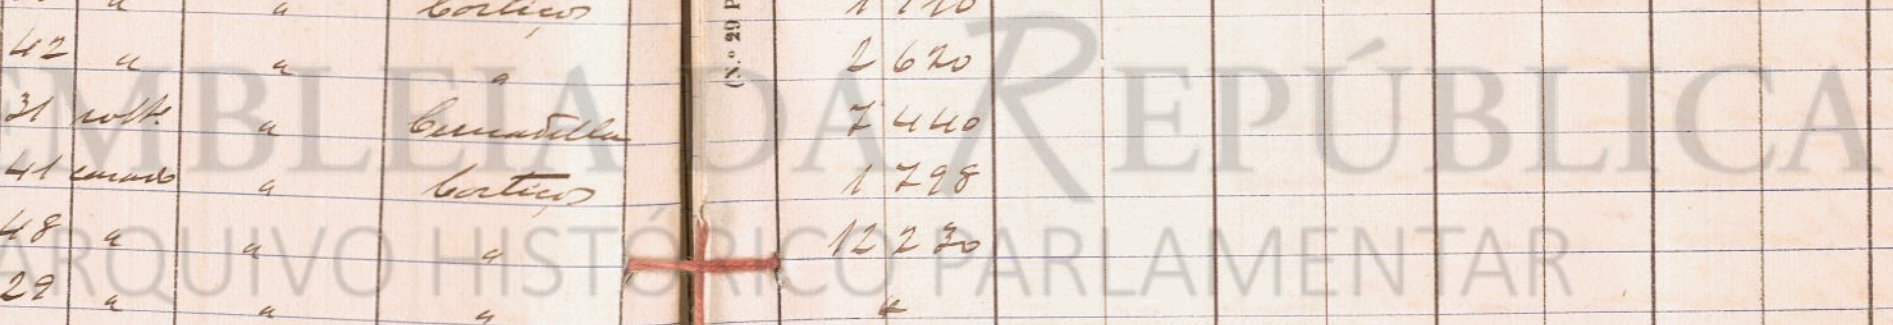 " " Cortiços 1 110
42 " " " 2 620
31 solt.º " Cernadella 7 440
41 casado " Cortiços 1 798
48 " " " 12 230
29 " " " "
(N.º 29 P
ASSEMBLEIA DA REPÚBLICA
ARQUIVO HISTÓRICO PARLAMENTAR